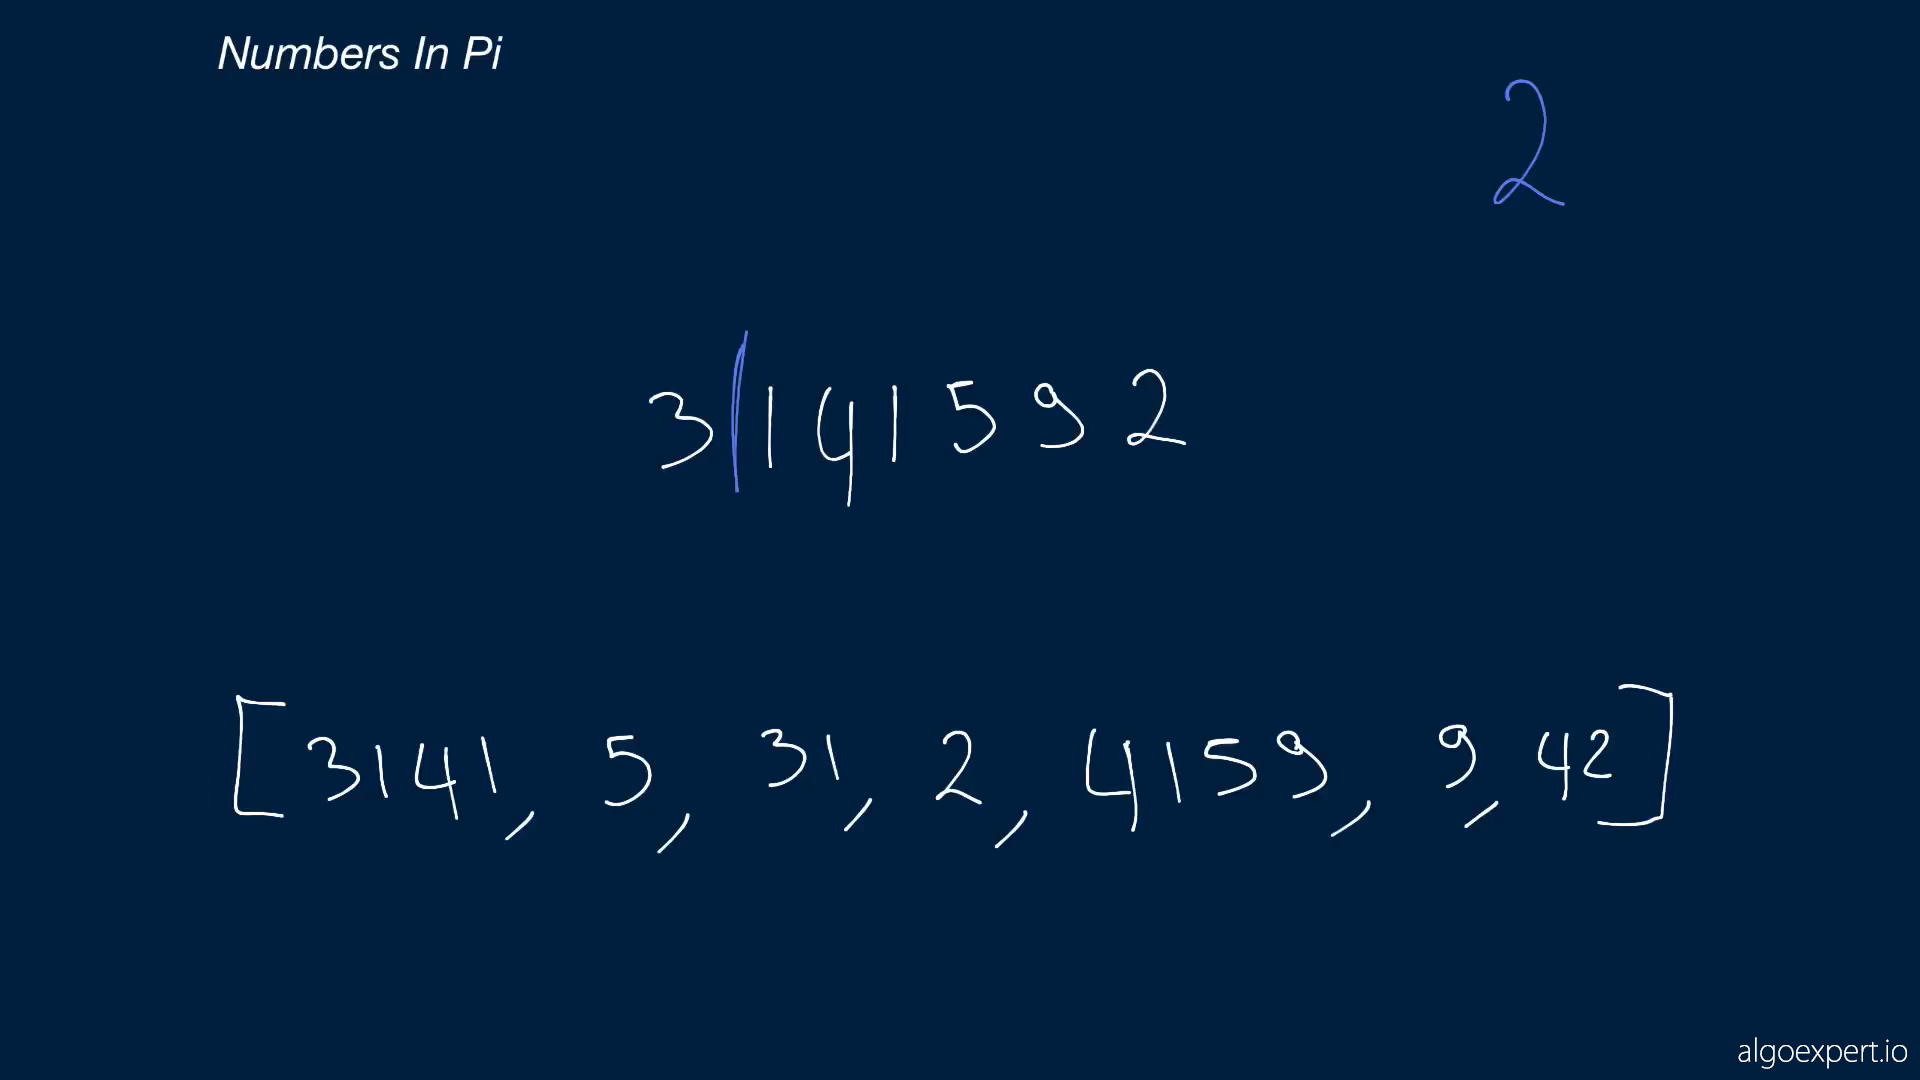 Numbers In Pi
2
3|141592
[3141, 5, 31, 2, 4159, 9, 42]
algoexpert.io